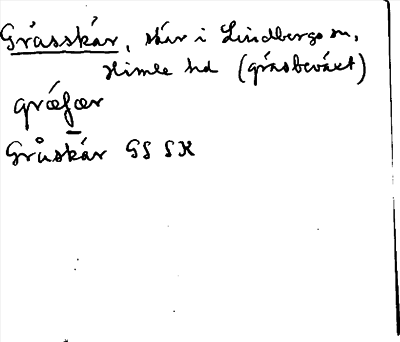 Gråsskär, skär i Lindbergs sn,
Himle hd (gräsbeväxt)
græsær
Gråskär GS SK